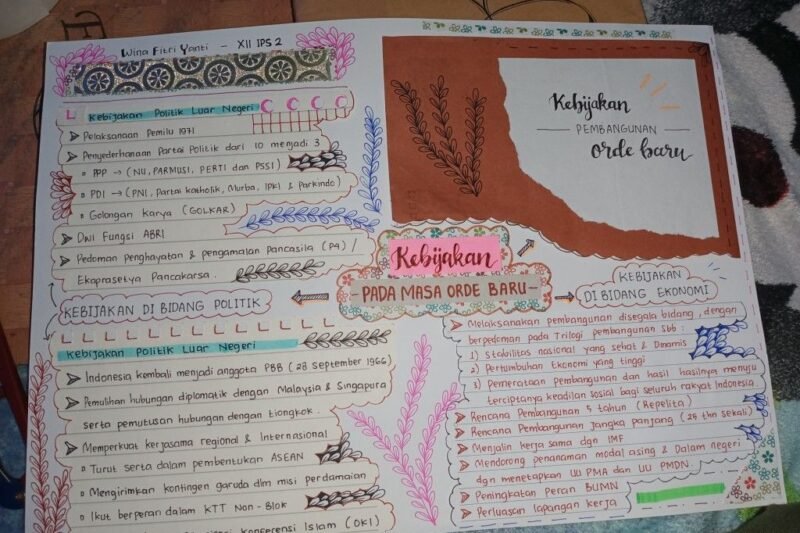 Wina Fitri Yanti - XII IPS 2
Kebijakan Politik Luar Negeri
Pelaksanaan Pemilu 1971
Penyederhanaan Partai Politik dari 10 menjadi 3
PPP → (NU, PARMUSI, PERTI dan PSSI)
PDI → (PNI, Partai Katholik, Murba, IPKI & Parkindo)
Golongan Karya (GOLKAR)
Dwi Fungsi ABRI
Pedoman penghayatan & pengamalan Pancasila (P4) /
Ekaprasetya Pancakarsa.
KEBIJAKAN DI BIDANG POLITIK
Kebijakan Politik Luar Negeri
Indonesia kembali menjadi anggota PBB (28 September 1966)
Pemulihan hubungan diplomatik dengan Malaysia & Singapura
serta pemutusan hubungan dengan tiongkok.
Memperkuat kerjasama regional & Internasional
Turut serta dalam pembentukan ASEAN
Mengirimkan kontingen garuda dlm misi perdamaian
Ikut berperan dalam KTT Non-Blok
Konferensi Islam (OKI)
Kebijakan
PADA MASA ORDE BARU
Kebijakan
PEMBANGUNAN
orde baru
KEBIJAKAN
DI BIDANG EKONOMI
Melaksanakan pembangunan disegala bidang, dengan
berpedoman pada Trilogi pembangunan sbb :
1) Stabilitas nasional yang sehat & Dinamis
2) Pertumbuhan Ekonomi yang tinggi
3) Pemerataan Pembangunan dan hasil hasilnya menuju
terciptanya keadilan sosial bagi seluruh rakyat Indonesia.
Rencana Pembangunan 5 tahun (Repelita)
Rencana Pembangunan Jangka panjang (25 thn sekali)
Menjalin kerja sama dgn IMF
Mendorong penanaman modal asing & Dalam negeri
dgn menetapkan UU PMA dan UU PMDN
Peningkatan Peran BUMN
Perluasan lapangan kerja